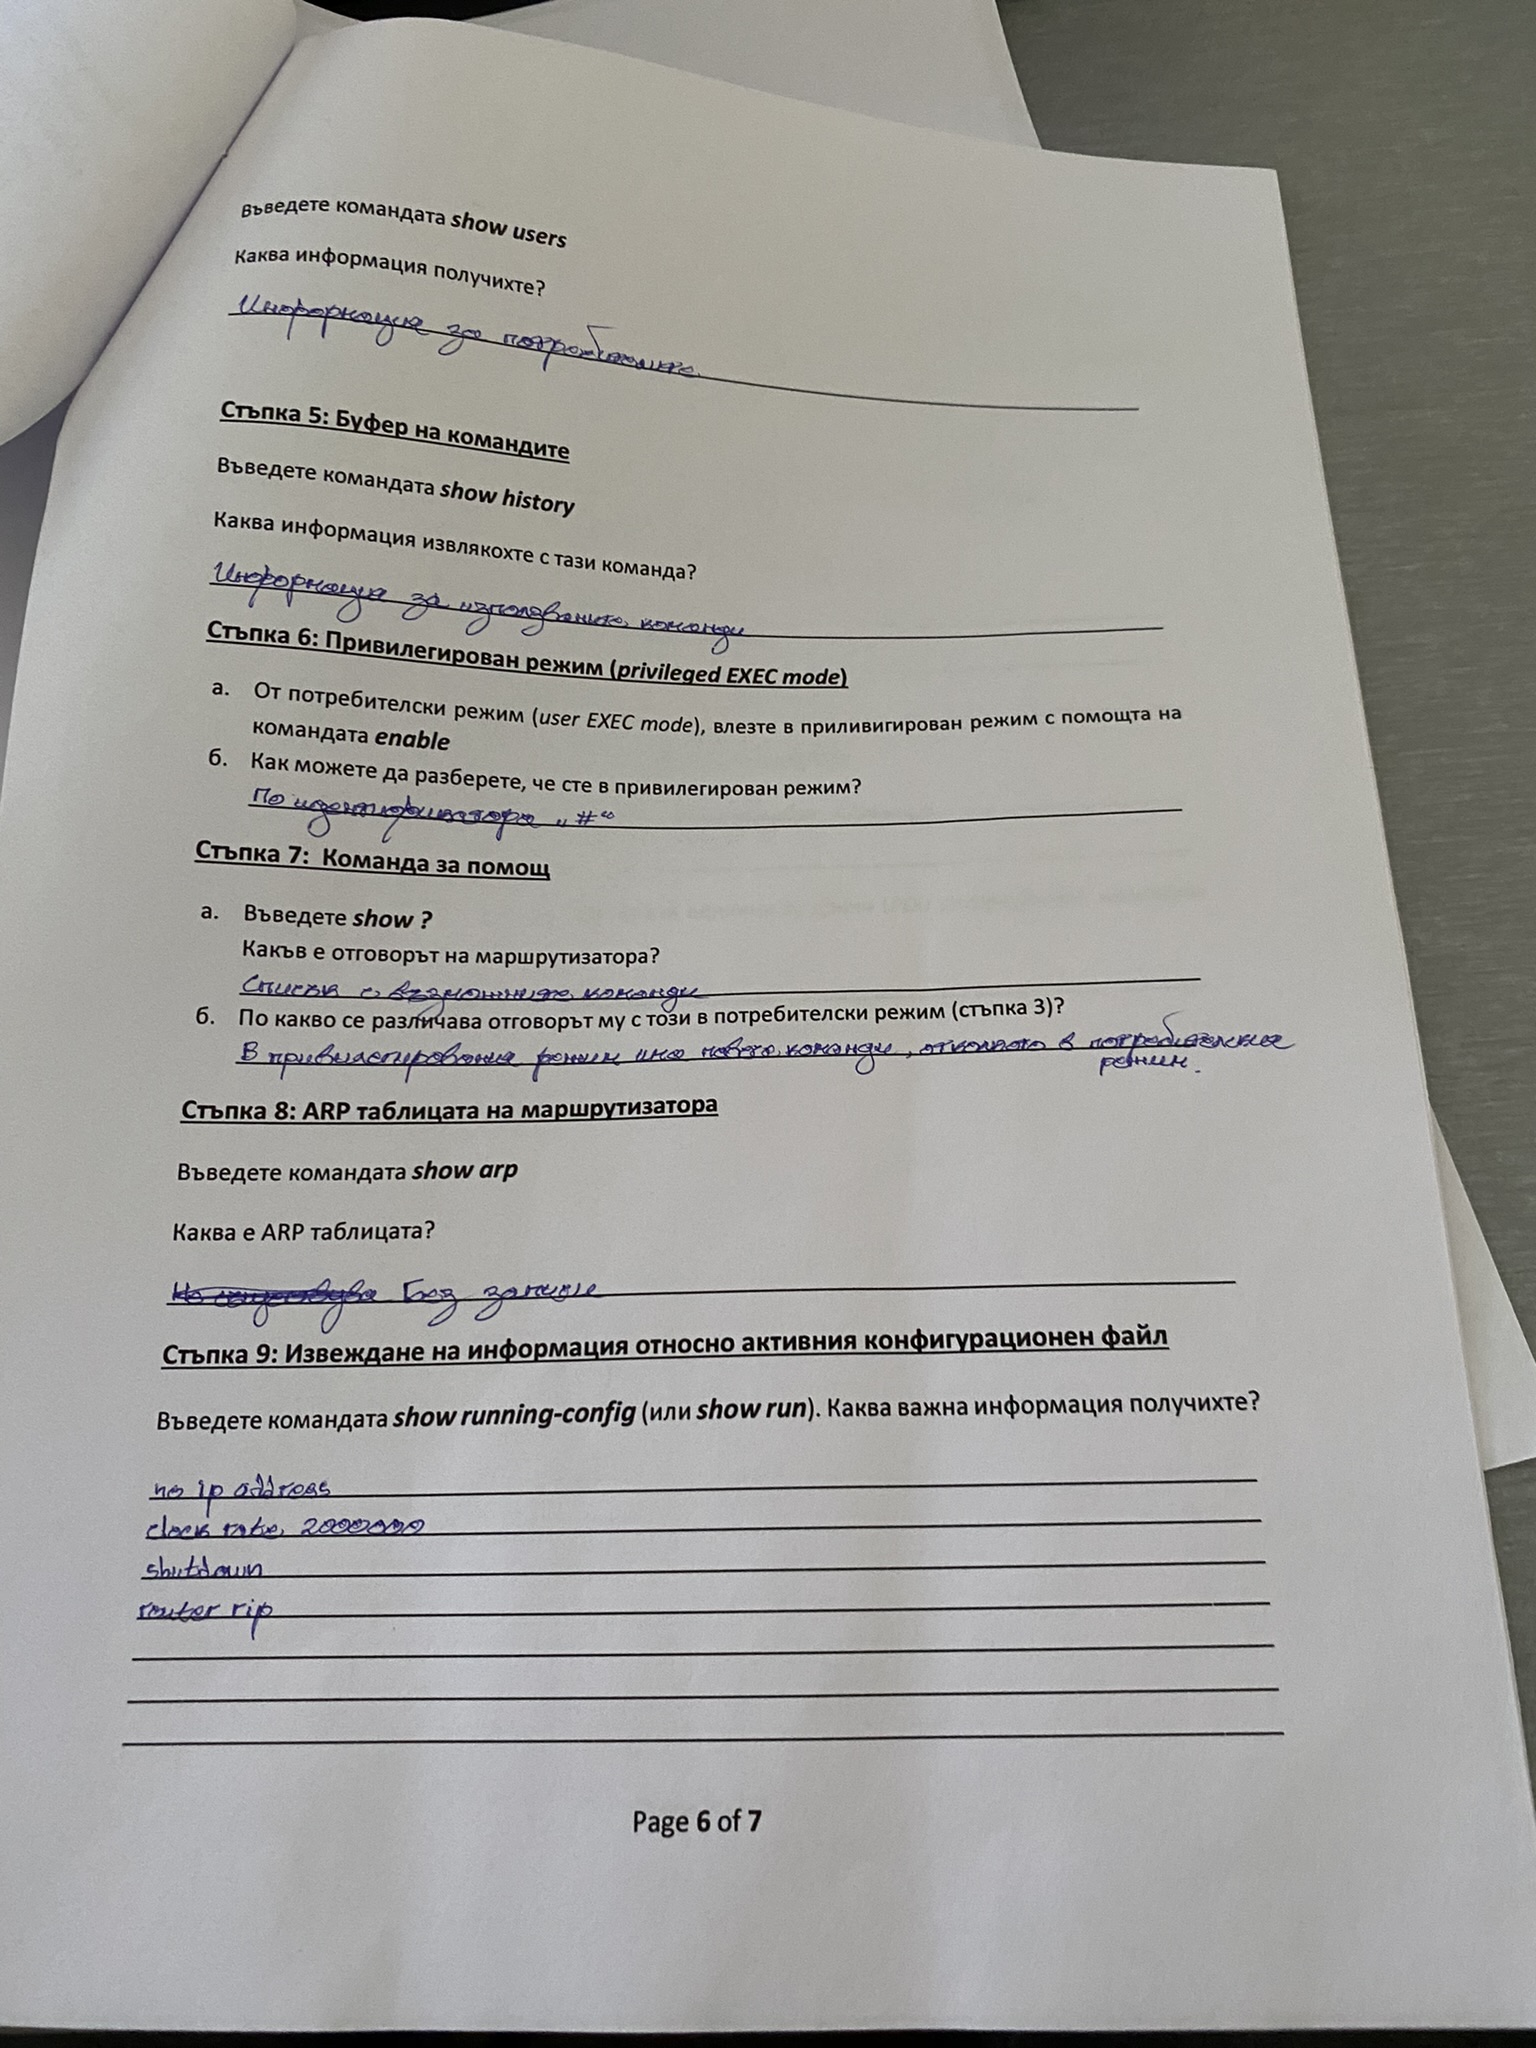 Въведете командата show users
Каква информация получихте?
Информация за потребителите.
Стъпка 5: Буфер на командите
Въведете командата show history
Каква информация извлякохте с тази команда?
Информация за използваните команди
Стъпка 6: Привилегирован режим (privileged EXEC mode)
а. От потребителски режим (user EXEC mode), влезте в приливигирован режим с помощта на
командата enable
б. Как можете да разберете, че сте в привилегирован режим?
По идентификатора „#“
Стъпка 7: Команда за помощ
а. Въведете show ?
Какъв е отговорът на маршрутизатора?
Списък с възможните команди
б. По какво се различава отговорът му с този в потребителски режим (стъпка 3)?
В привилегирования режим има повече команди, отколкото в потребителския
режим.
Стъпка 8: ARP таблицата на маршрутизатора
Въведете командата show arp
Каква е ARP таблицата?
Без записи
Стъпка 9: Извеждане на информация относно активния конфигурационен файл
Въведете командата show running-config (или show run). Каква важна информация получихте?
no ip address
clock rate 2000000
shutdown
router rip
Page 6 of 7